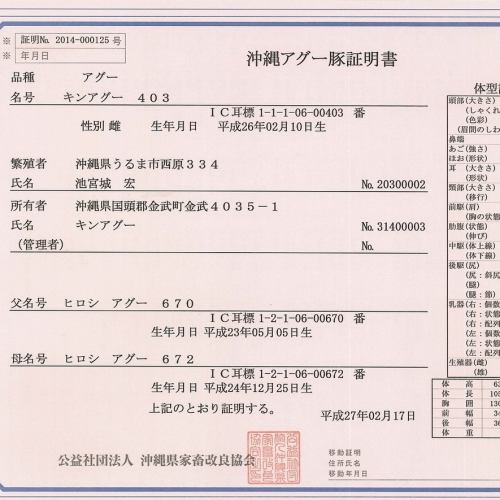 ※ 証明No. 2014-000125 号
※ 年月日
沖縄アグー豚証明書
品種 アグー
名号 キンアグー 403
IC耳標 1-1-1-06-00403 番
性別 雌 生年月日 平成26年02月10日生
繁殖者 沖縄県うるま市西原334
氏名 池宮城 宏 No. 20300002
所有者 沖縄県国頭郡金武町金武4035-1
氏名 キンアグー No. 31400003
(管理者) No.
父名号 ヒロシ アグー 670
IC耳標 1-2-1-06-00670 番
生年月日 平成23年05月05日生
母名号 ヒロシ アグー 672
IC耳標 1-2-1-06-00672 番
生年月日 平成24年12月25日生
上記のとおり証明する。
平成27年02月17日
公益社団法人 沖縄県家畜改良協会
移動証明
住所氏名
移動年月日
体型
頭部(大きさ)
(しゃくれ
(色彩)
(眉間のしわ
鼻端
あご(強さ)
ほお(形状)
耳 (大きさ)
(形状)
頸部(大きさ)
(移行)
前駆(肩)
(胸の状態
肋腹(状態)
(伸び)
中駆(体上線)
(体下線)
後駆(尻)
(尻:斜尻
(腿)
(腿:節)
乳器(右:個数
(右:状態
(右:配列
(左:個数
(左:状態
(左:配列
生殖器(雌)
(雄)
体高 63
体長 105
胸囲 130
前幅 34
後幅 36
体重